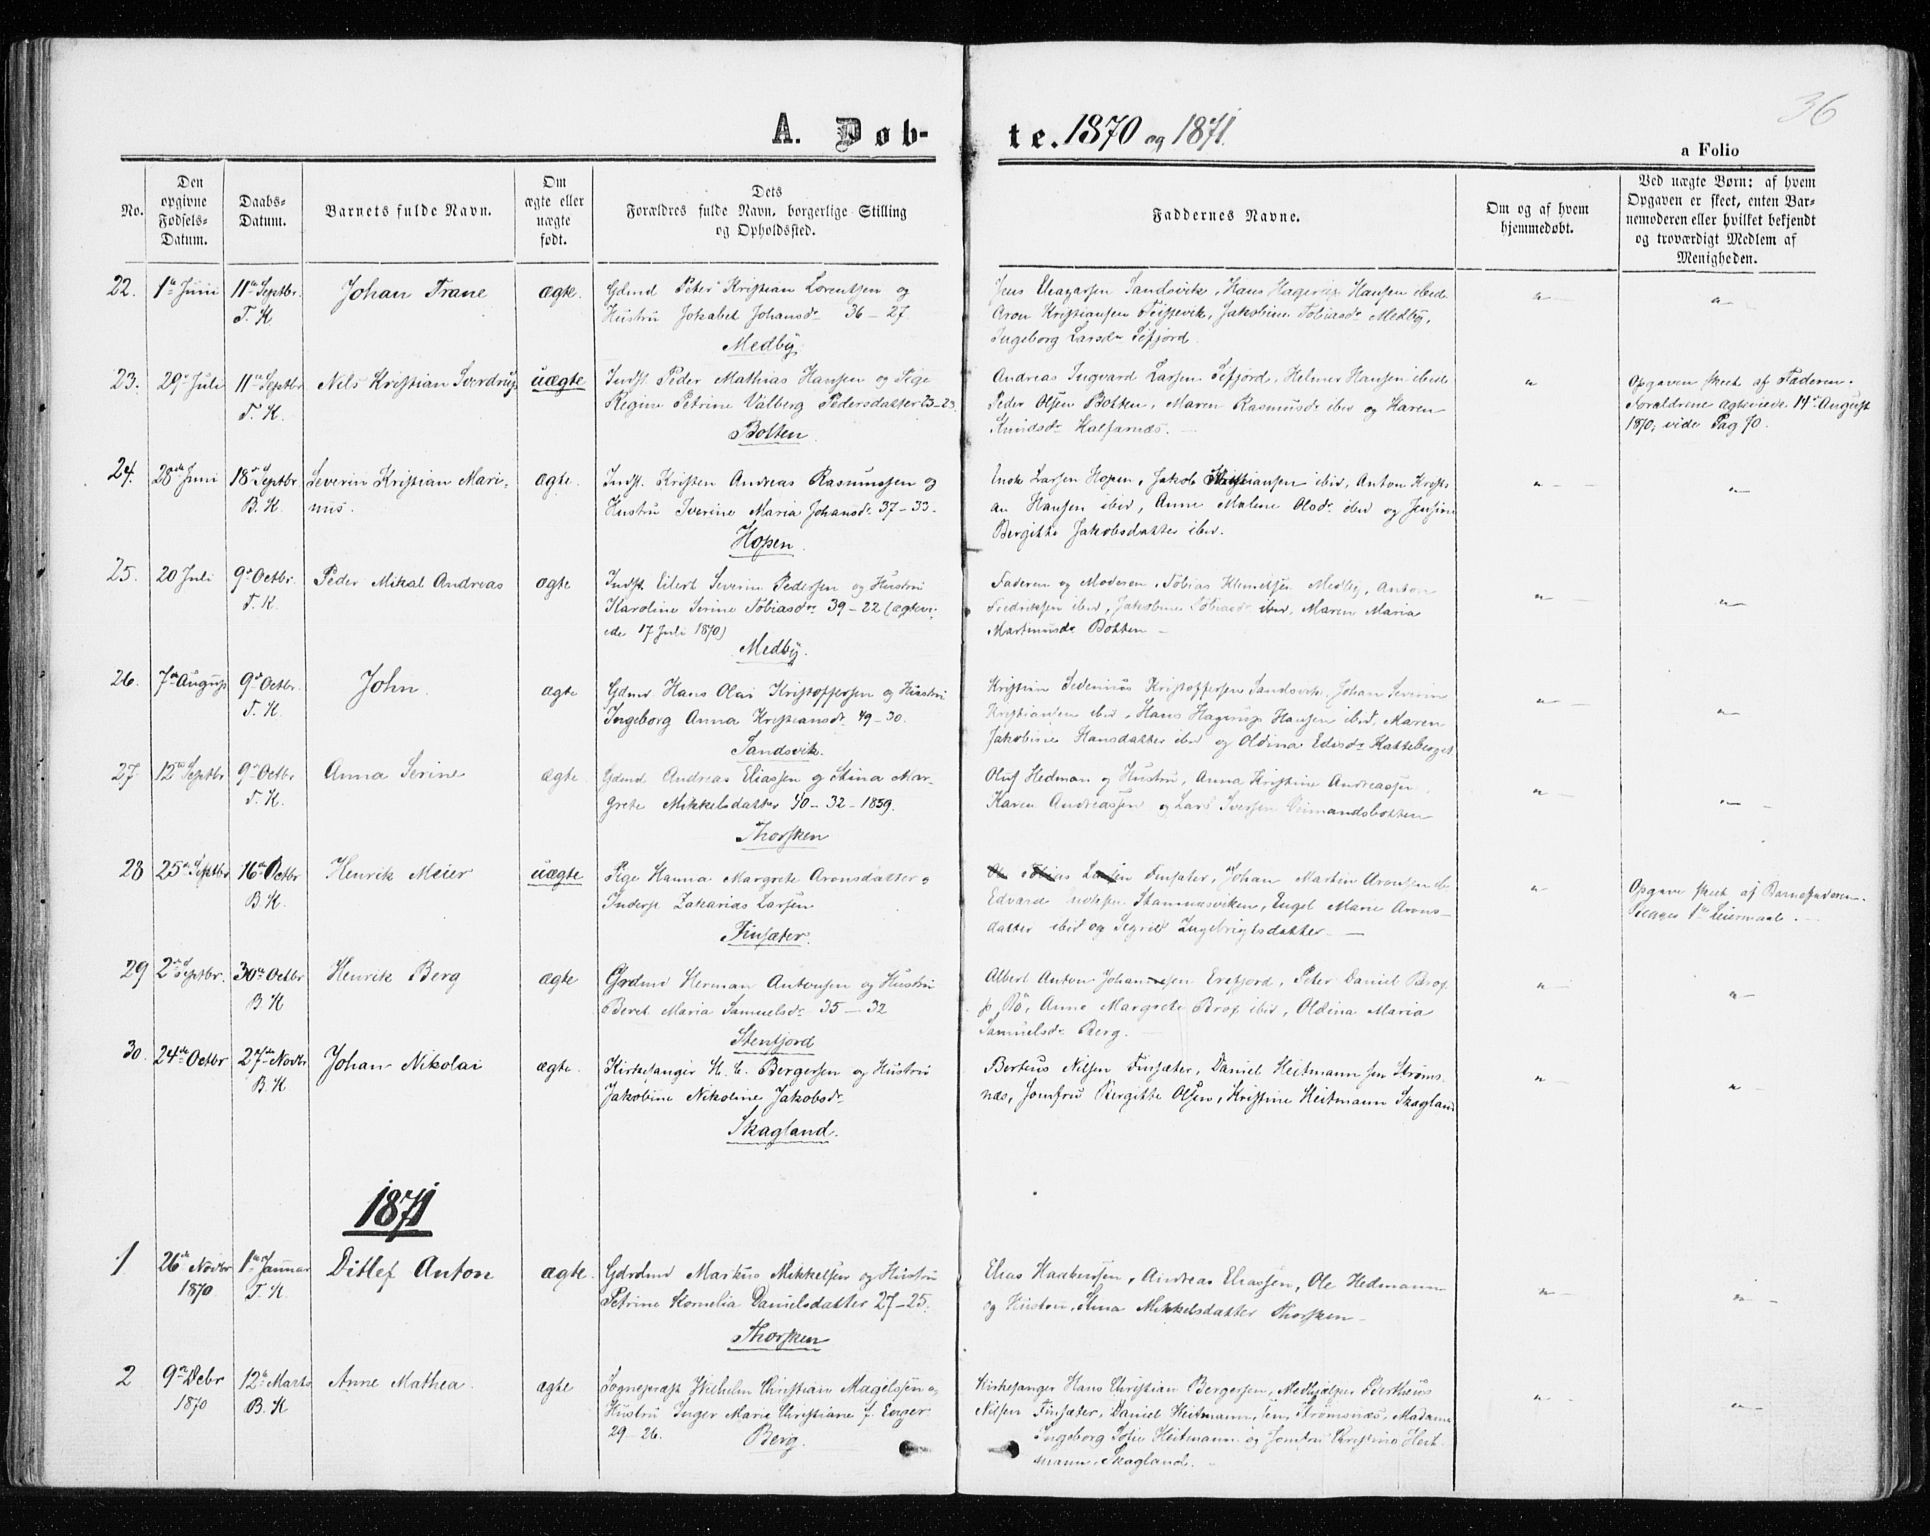 36
A. Døb-
te. 1870 og 1871.
a Folio
No.
Den opgivne Fødsels-Datum.
Daabs-Datum.
Barnets fulde Navn.
Om ægte eller uægte født.
Dets Forældres fulde Navn, borgerlige Stilling og Opholdssted.
Faddernes Navne.
Om og af hvem hjemmedøbt.
Ved uægte Børn: af hvem Opgaven er skeet, enten Barnemoderen eller hvilket bekjendt og troværdigt Medlem af Menigheden.
22. 1ste Juni 11te Septbr. T. K. Johan Trane ægte.
Gdmd Peter Kristian Lorentsen og
Hustru Johansdr 36-27
Medby
Jens Sandsvik, Hans Hagerup Hansen ibid.
Aron Kristiansen Teistevik, Jakobine Tobiasdr Medby,
Ingeborg Larsdr Sifjord.
23. 29de Juli 11te Septbr T. K. Nils Kristian Sverdrup uægte
Indst. Peder Mathias Hansen og Pige
Regine Petrine Valberg Pedersdatter 23-23.
Botten.
Andreas Ingvard Larsen Sifjord, Helmer Hansen ibid
Peder Olsen Botten, Maren Rasmusdr ibid og Karen
Knudsdr Kalfarnæs. -
Opgaven skeet af Faderen.
Forældrene ægteviede 14de August
1870, vide Pag 70.
24. 28de Juni 18de Septbr B. K. Severin Kristian Mari-
nus. ægte.
Indst. Kristen Andreas Rasmussen og
Hustru Iverine Maria Johansdr 37-33.
Hopen.
Larsen Hopen, Jakob Kristiansen ibid, Anton Kristi-
an Hansen ibid, Anne Malene Olsdr ibid og Jensine
Bergitte Jakobsdatter ibid.
25. 20 Juli 9de Octbr. T. K. Peder Mikal Andreas ægte
Indst. Eilert Severin Pedersen og Hustru
Karoline Serine Tobiasdr 39-22 (ægtevi-
ede 17 Juli 1870)
Medby.
Faderen og Moderen, Tobias Klemetsen Medby, Anton
Fredriksen ibid, Jakobine Tobiasdr ibid, Maren Maria
Martinusdr Botten -
26. 7de August 9de Octbr. T. K. John. ægte
Gdmd Hans Olai Kristoffersen og Hustru
Ingeborg Anna Kristiansdr 49-30.
Sandsvik.
Kristian Kristoffersen Sandsvik, Johan Severin
Kristiansen ibid, Hans Hagerup Hansen ibid, Maren
Jakobine Hansdatter ibid og Oldina Katteberget
27 12te Septbr 9de Octbr T. K. Anna Serine ægte
Gdmd Andreas Eliassen og Stina Mar-
grete Mikkelsdatter 40-32-1859.
Thorsken
Oluf Hedman og Hustru, Anna Kristine Andreassen,
Karen Andreassen og Lars Iversen
28 25de Septbr 16de Octbr B K. Henrik Meier uægte
Pige Hanna Margrete Aronsdatter og
Inderst Zakarias Larsen
Finsæter.
Larsen Finsæter, Johan Martin Aronsen ib.
Edvard Stamnæsviken, Engel Marie Arons-
datter ibid og Sigrid Ingebrigtsdatter -
Opgave skeet af Barnefaderen.
Beges 1ste Leiermaal.
29 2den Septbr. 30te Octbr B K. Henrik Berg ægte
Grdmd Herman Antonsen og Hustru
Beret Maria Samuelsdr 35-32
Stenfjord
Albert Anton Johannesen Ersfjord, Peter Daniel Brox
Anne Margrete Brox ibid, Oldina Maria
Samuelsdr Berg. -
30. 24de Octbr 27de Novbr B. K. Johan Nikolai ægte.
Kirkesanger H. C. Bergersen og Hustru
Jakobine Nikoline Jakobsdr
Skagland.
Berteus Nilsen Finsæter, Daniel Heitmann sen Strøms-
næs, Jomfru Bergitte Olsen, Kristine Heitmann Skagland
1871
1 26de Novbr 1870 1ste Januar T. K. Ditlef Anton ægte.
Gårdmd Markus Mikkelsen og Hustru
Petrine Kornelia Danielsdatter 27-25.
Thorsken
Elias Haabensen, Andreas Eliassen, Ole Hedmann
og Hustru, Stina Mikkelsdatter Thorsken -
2 9de Debr 1870 12te Marts B. K. Anne Mathea. ægte
Sognepræst Wilhelm Christian Magelssen og
Hustru Inger Marie Christiane f. Enger
29-26. Berg.
Kirkesanger Hans Christian Bergersen, Medhjelper Bertheus
Nilsen Finsæter, Daniel Heitmann, sen, Strømsnæs, Madame
Ingeborg Sofie Heitmann og Jomfru Christine Heit-
mann, Skagland.